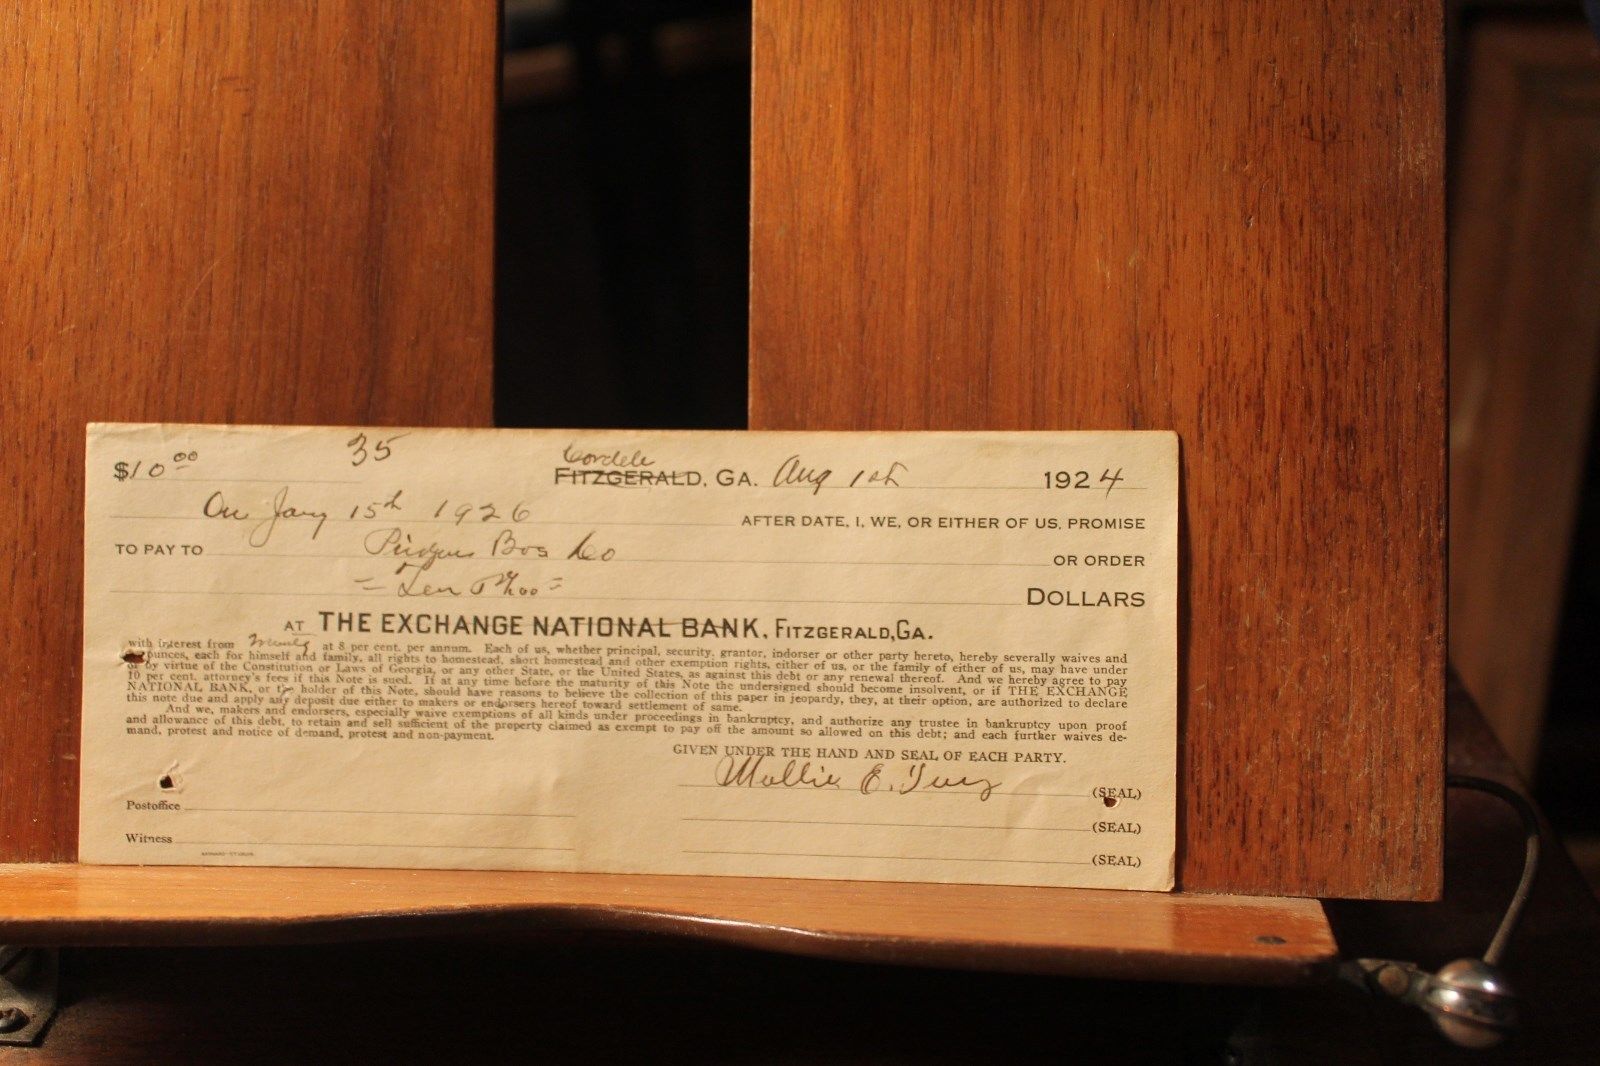 35
Cordele
$10.00 FITZGERALD, GA. Aug 1st 1924
On Jany 15th 1926 AFTER DATE, I, WE, OR EITHER OF US, PROMISE
TO PAY TO Bros Co OR ORDER
= Ten & no/00 = DOLLARS
AT THE EXCHANGE NATIONAL BANK, FITZGERALD, GA.
with interest from at 8 per cent. per annum. Each of us, whether principal, security, grantor, indorser or other party hereto, hereby severally waives and
ounces, each for himself and family, all rights to homestead, short homestead and other exemption rights, either of us, or the family of either of us, may have under
or by virtue of the Constitution or Laws of Georgia, or any other State, or the United States, as against this debt or any renewal thereof. And we hereby agree to pay
10 per cent. attorney's fees if this Note is sued. If at any time before the maturity of this Note the undersigned should become insolvent, or if THE EXCHANGE
NATIONAL BANK, or the holder of this Note, should have reasons to believe the collection of this paper in jeopardy, they, at their option, are authorized to declare
this note due and apply any deposit due either to makers or endorsers hereof toward settlement of same.
And we, makers and endorsers, especially waive exemptions of all kinds under proceedings in bankruptcy, and authorize any trustee in bankruptcy upon proof
and allowance of this debt, to retain and sell sufficient of the property claimed as exempt to pay off the amount so allowed on this debt; and each further waives de-
mand, protest and notice of demand, protest and non-payment.
GIVEN UNDER THE HAND AND SEAL OF EACH PARTY.
Mollie E. (SEAL)
Postoffice (SEAL)
Witness (SEAL)